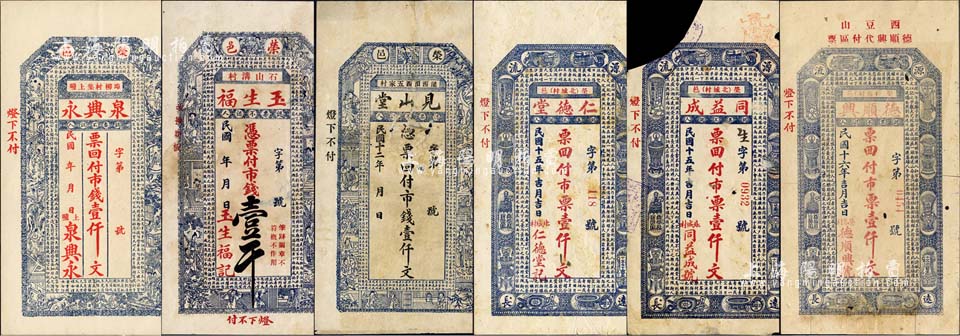 榮邑
埠柳村集上疃
泉興永
字第 號
票回付市錢壹仟文
民國 年 月 日
上疃 泉興永
燈下不付
榮邑
石山溝村
玉生福
字第 號
憑票付市錢
壹千
民國 年 月 日
玉生福記
燈下不付
榮邑
見山堂
字第 號
憑票回付市錢壹仟文
民國十二年 月 日
燈下不付
源流
榮(北城村)邑
仁德堂
字第 號
票回付市票壹仟文
民國十五年吉月吉日
仁德堂記
遠長
燈下不付
源流
榮(北城村)邑
同益成
生字第0932號
票回付市票壹仟文
民國十五年吉月吉日
同益成號
遠長
燈下不付
西豆山
德順興代付區票
源流
德順興
字第 號
票回付市票壹仟文
民國十六年吉月吉日
德順興號
遠長
燈下不付